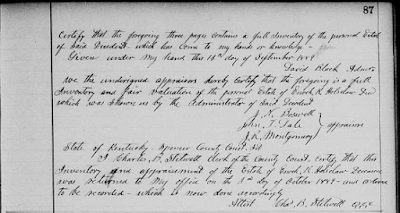 87
Certify that the foregoing three pages contains a full Inventory of the personal Estate
of said Decedent which has come to my hands or knowledge
Given under my hand this 15th day of September 1859
David Black Admr
We the undersigned appraisers hereby certify that the foregoing is a full
Inventory and fair valuation of the personal Estate of Enoch K. Holsclaw Decd
which was shown us by the Administrator of said Decedent
J. N. Boswell
John T. Tale
J. R. Montgomery
appraisers
State of Kentucky Spencer County Court Sct
I Charles B. Stilwell Clerk of the County Court certify that this
Inventory and appraisement of the Estate of Enoch K. Holsclaw Deceased
was returned to my office on the day of October 1859 and ordered
to be recorded which is now done accordingly
Attest Chas. B. Stilwell